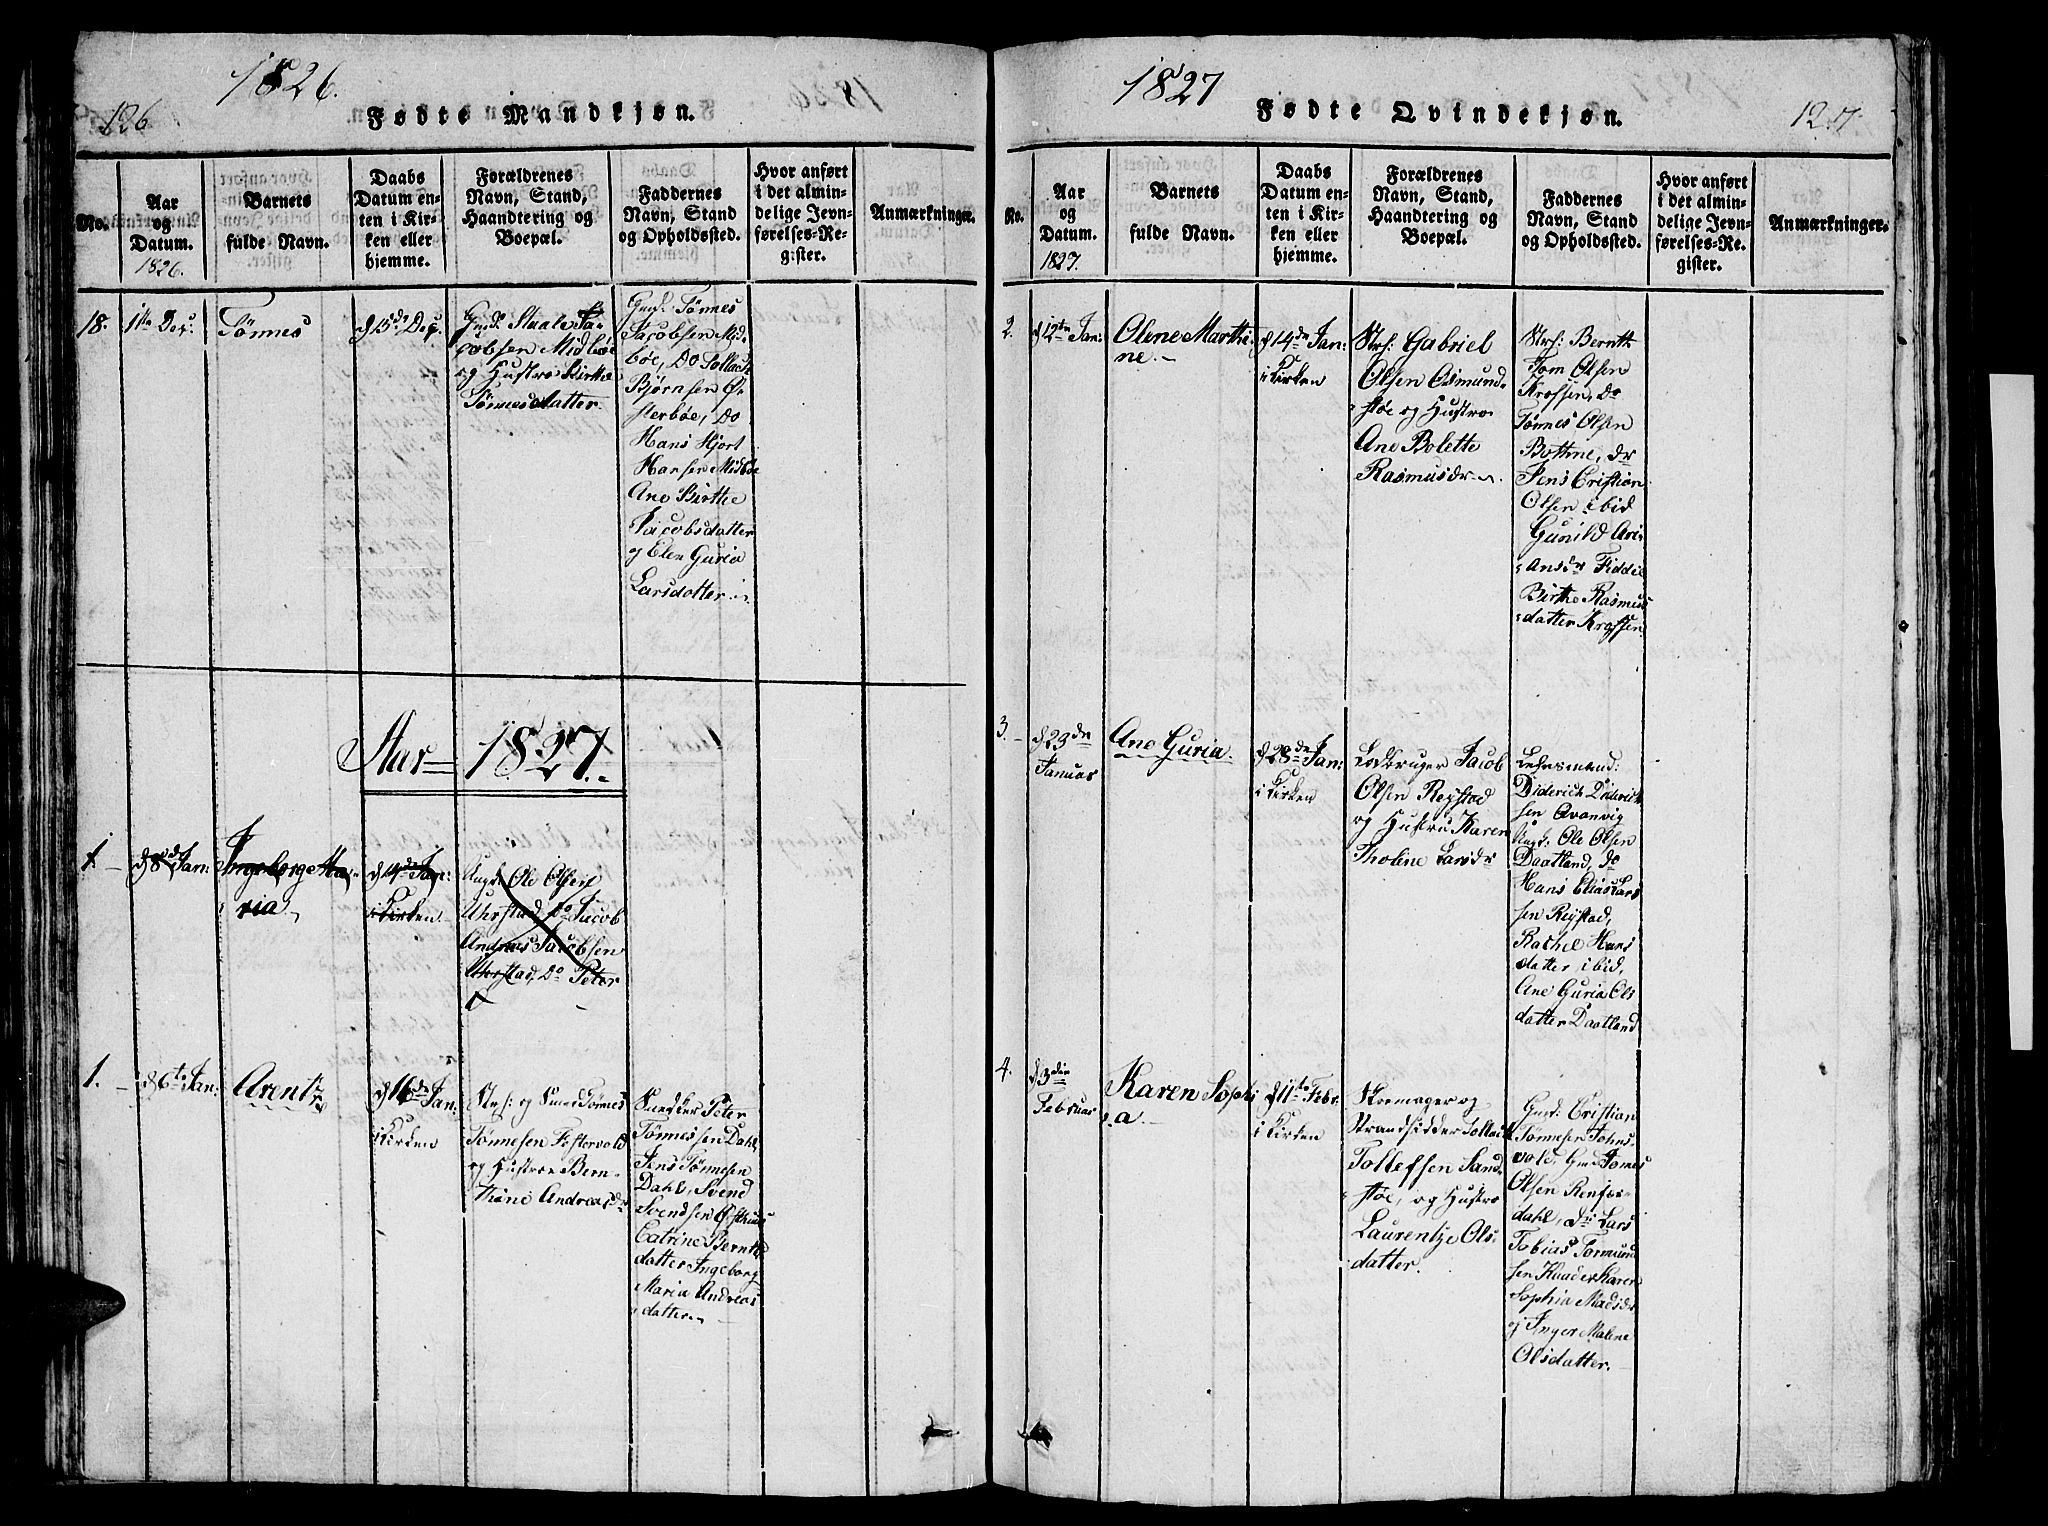 1826.
126
Fødte Mandkjøn.
No.
Aar
og
Datum.
1826.
Barnets
fulde Navn.
Daabs
Datum en-
ten i Kir-
ken eller
hjemme.
Forældrenes
Navn, Stand,
Haandtering og
Boepæl.
Faddernes
Navn, Stand
og Opholdssted.
Hvor anført
i det almin-
delige Jevn-
førelses-Re-
gister.
Anmærkninger.
18.
11te Dec:
Tønnes
d 15de Dec:
Gmd: Staale Ja-
cobsen Midbøe
og Hustro Birthe
Tønnesdatter
Gmd: Tønnes
Jacobsen Mid-
bøe, Do Tollach
Bjørnsen Ø-
sterbøe, Do
Hans Hjort
Hansen Midbøe
Ane Birthe
Jacobsdatter
og Elen Guria
Larsdatter
Aar 1827.
1.
d 8de Jan:
Ingeborg Ma-
ria
d 14de Jan:
i Kirken
Ungk: Ole Olsen
Uhrstad, Do Jacob
Andreas Jacobsen
Uhrstad, Do Peter
1.
d 6te Jan:
Arent
d 16de Jan:
i Kirken
Str: og Smed Tønnes
Tønnesen Festervold
og Hustroe Bern-
thine Andreasdr
Snedker Peter
Tønnessen Dahl,
Jens Tønnesen
Dahl, Svend
Svendsen
Catrine Bernth
datter Ingeborg
Maria Andreas
datter
1827
Fødte Qvindekjøn.
127.
No.
Aar
og
Datum.
1827.
Barnets
fulde Navn.
Daabs
Datum en-
ten i Kir-
ken eller
hjemme.
Forældrenes
Navn, Stand,
Haandtering og
Boepæl.
Faddernes
Navn, Stand
og Opholdssted.
Hvor anført
i det almin-
delige Jevn-
førelses-Re-
gister.
Anmærkninger.
2.
d 12te Jan:
Olene Marthi-
ne
d 14de Jan:
i Kirken
Str: Gabriel
Olsen Osmund-
støe og Hustro
Ane Bolette
Rasmusdr
Str: Bernth
Tom Olsen
Krossen, do
Tønnes Olsen
Bothne, dr
Jens Cristian
Olsen ibid
Gunild Ari-
ansdr Fidde
Birthe Rasmus
datter Krossen
3.
d 23de
Januar
Ane Guria
d 28de Jan:
i Kirken
Lodbruger Jacob
Olsen Regstad
og Hustru Karen
Tholine Larsdr
Lehnsmand:
Diderich Diderich
sen Qvanvig
Ungk: Ole Olsen
Daatland, do
Hans Elias Lars
sen Regstad,
Rachel Hans
datter, ibid,
Ane Guria Ols
datter Daatland
4.
d 3die
Februar
Karen Sophi
a.
d 11te Febr:
i Kirken
Skomager og
Strandsidder Tollach
Tollefsen Sand-
støe, og Hustro
Laurentze Ols-
datter.
Gmd: Cristian
Tønnesen Johns
vold, Gmd Tønnes
Olsen
dahl, dr Lars
Tobias Tormund
sen Karen
Sophia Madsdr
og Inger Malene
Olsdatter.